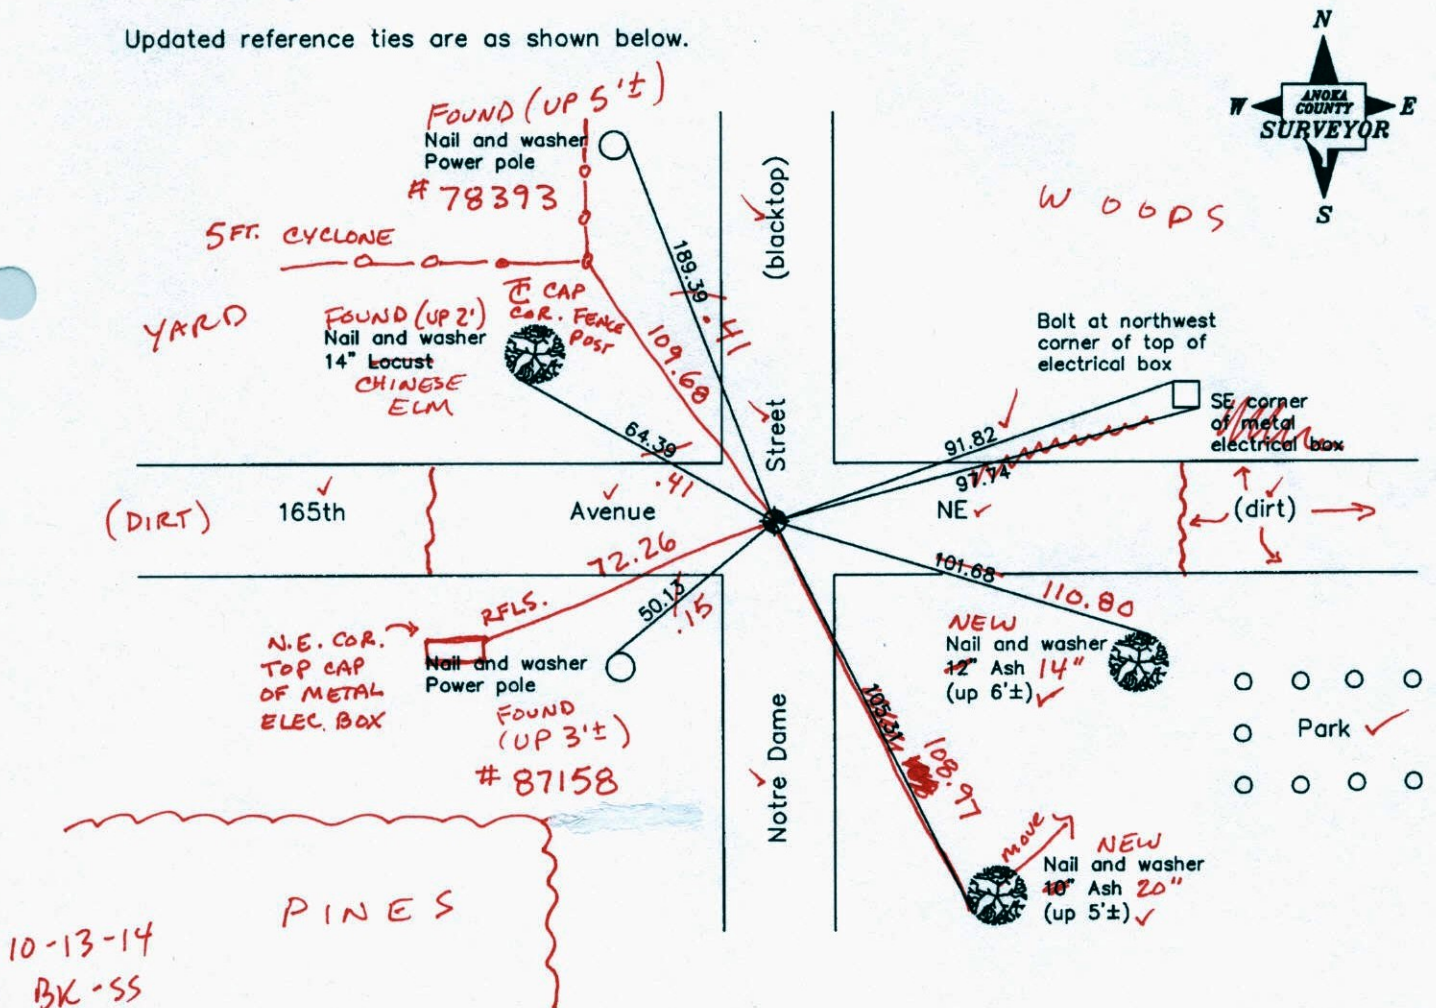 Updated reference ties are as shown below.
N
W
ANOKA
COUNTY
SURVEYOR
E
S
FOUND (UP 5'±)
Nail and washer
Power pole
# 78393
5FT. CYCLONE
YARD
FOUND (UP 2')
Nail and washer
14" Locust
CHINESE
ELM
CAP
COR. FENCE
POST
189.39
.41
109.68
64.39
.41
(blacktop)
Street
WOODS
Bolt at northwest
corner of top of
electrical box
SE corner
of metal
electrical box
91.82
97.74
(DIRT)
165th
Avenue
NE
(dirt)
72.26
RFLS.
50.13
.15
101.68
110.80
N.E. COR.
TOP CAP
OF METAL
ELEC. BOX
Nail and washer
Power pole
FOUND
(UP 3'±)
# 87158
NEW
Nail and washer
12" Ash 14"
(up 6'±)
Park
105.31
108.97
Notre Dame
MOVE
NEW
Nail and washer
10" Ash 20"
(up 5'±)
PINES
10-13-14
BK-SS